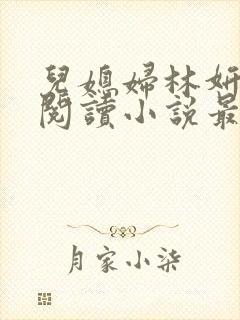 兒媳婦林妍
閱讀小説最
月家小柒